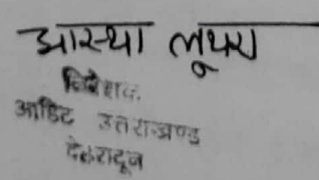 आस्था लूथरा
निदेशक
आडिट उत्तराखण्ड
देहरादून